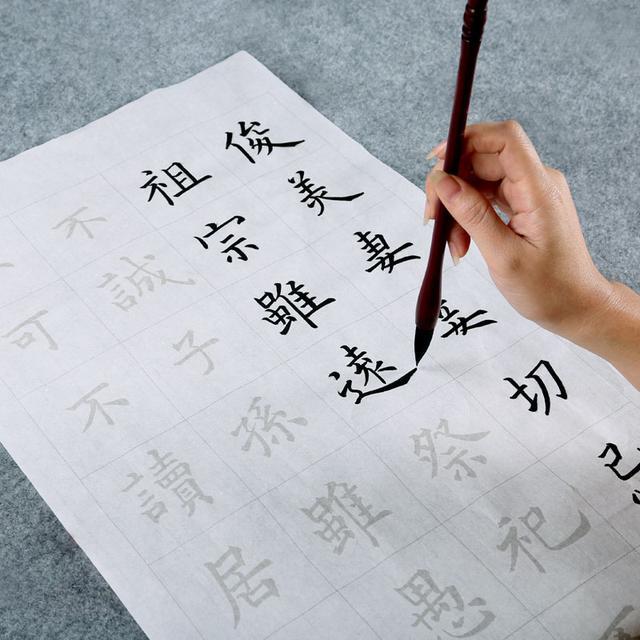 俊美妻妾切忌
祖宗雖遠祭祀
不誠子孫雖愚
可不讀居